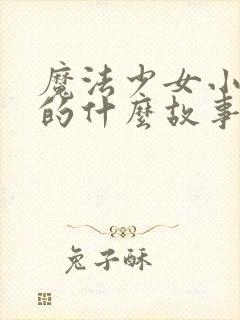 魔法少女小
的什麼故事
兔子酥